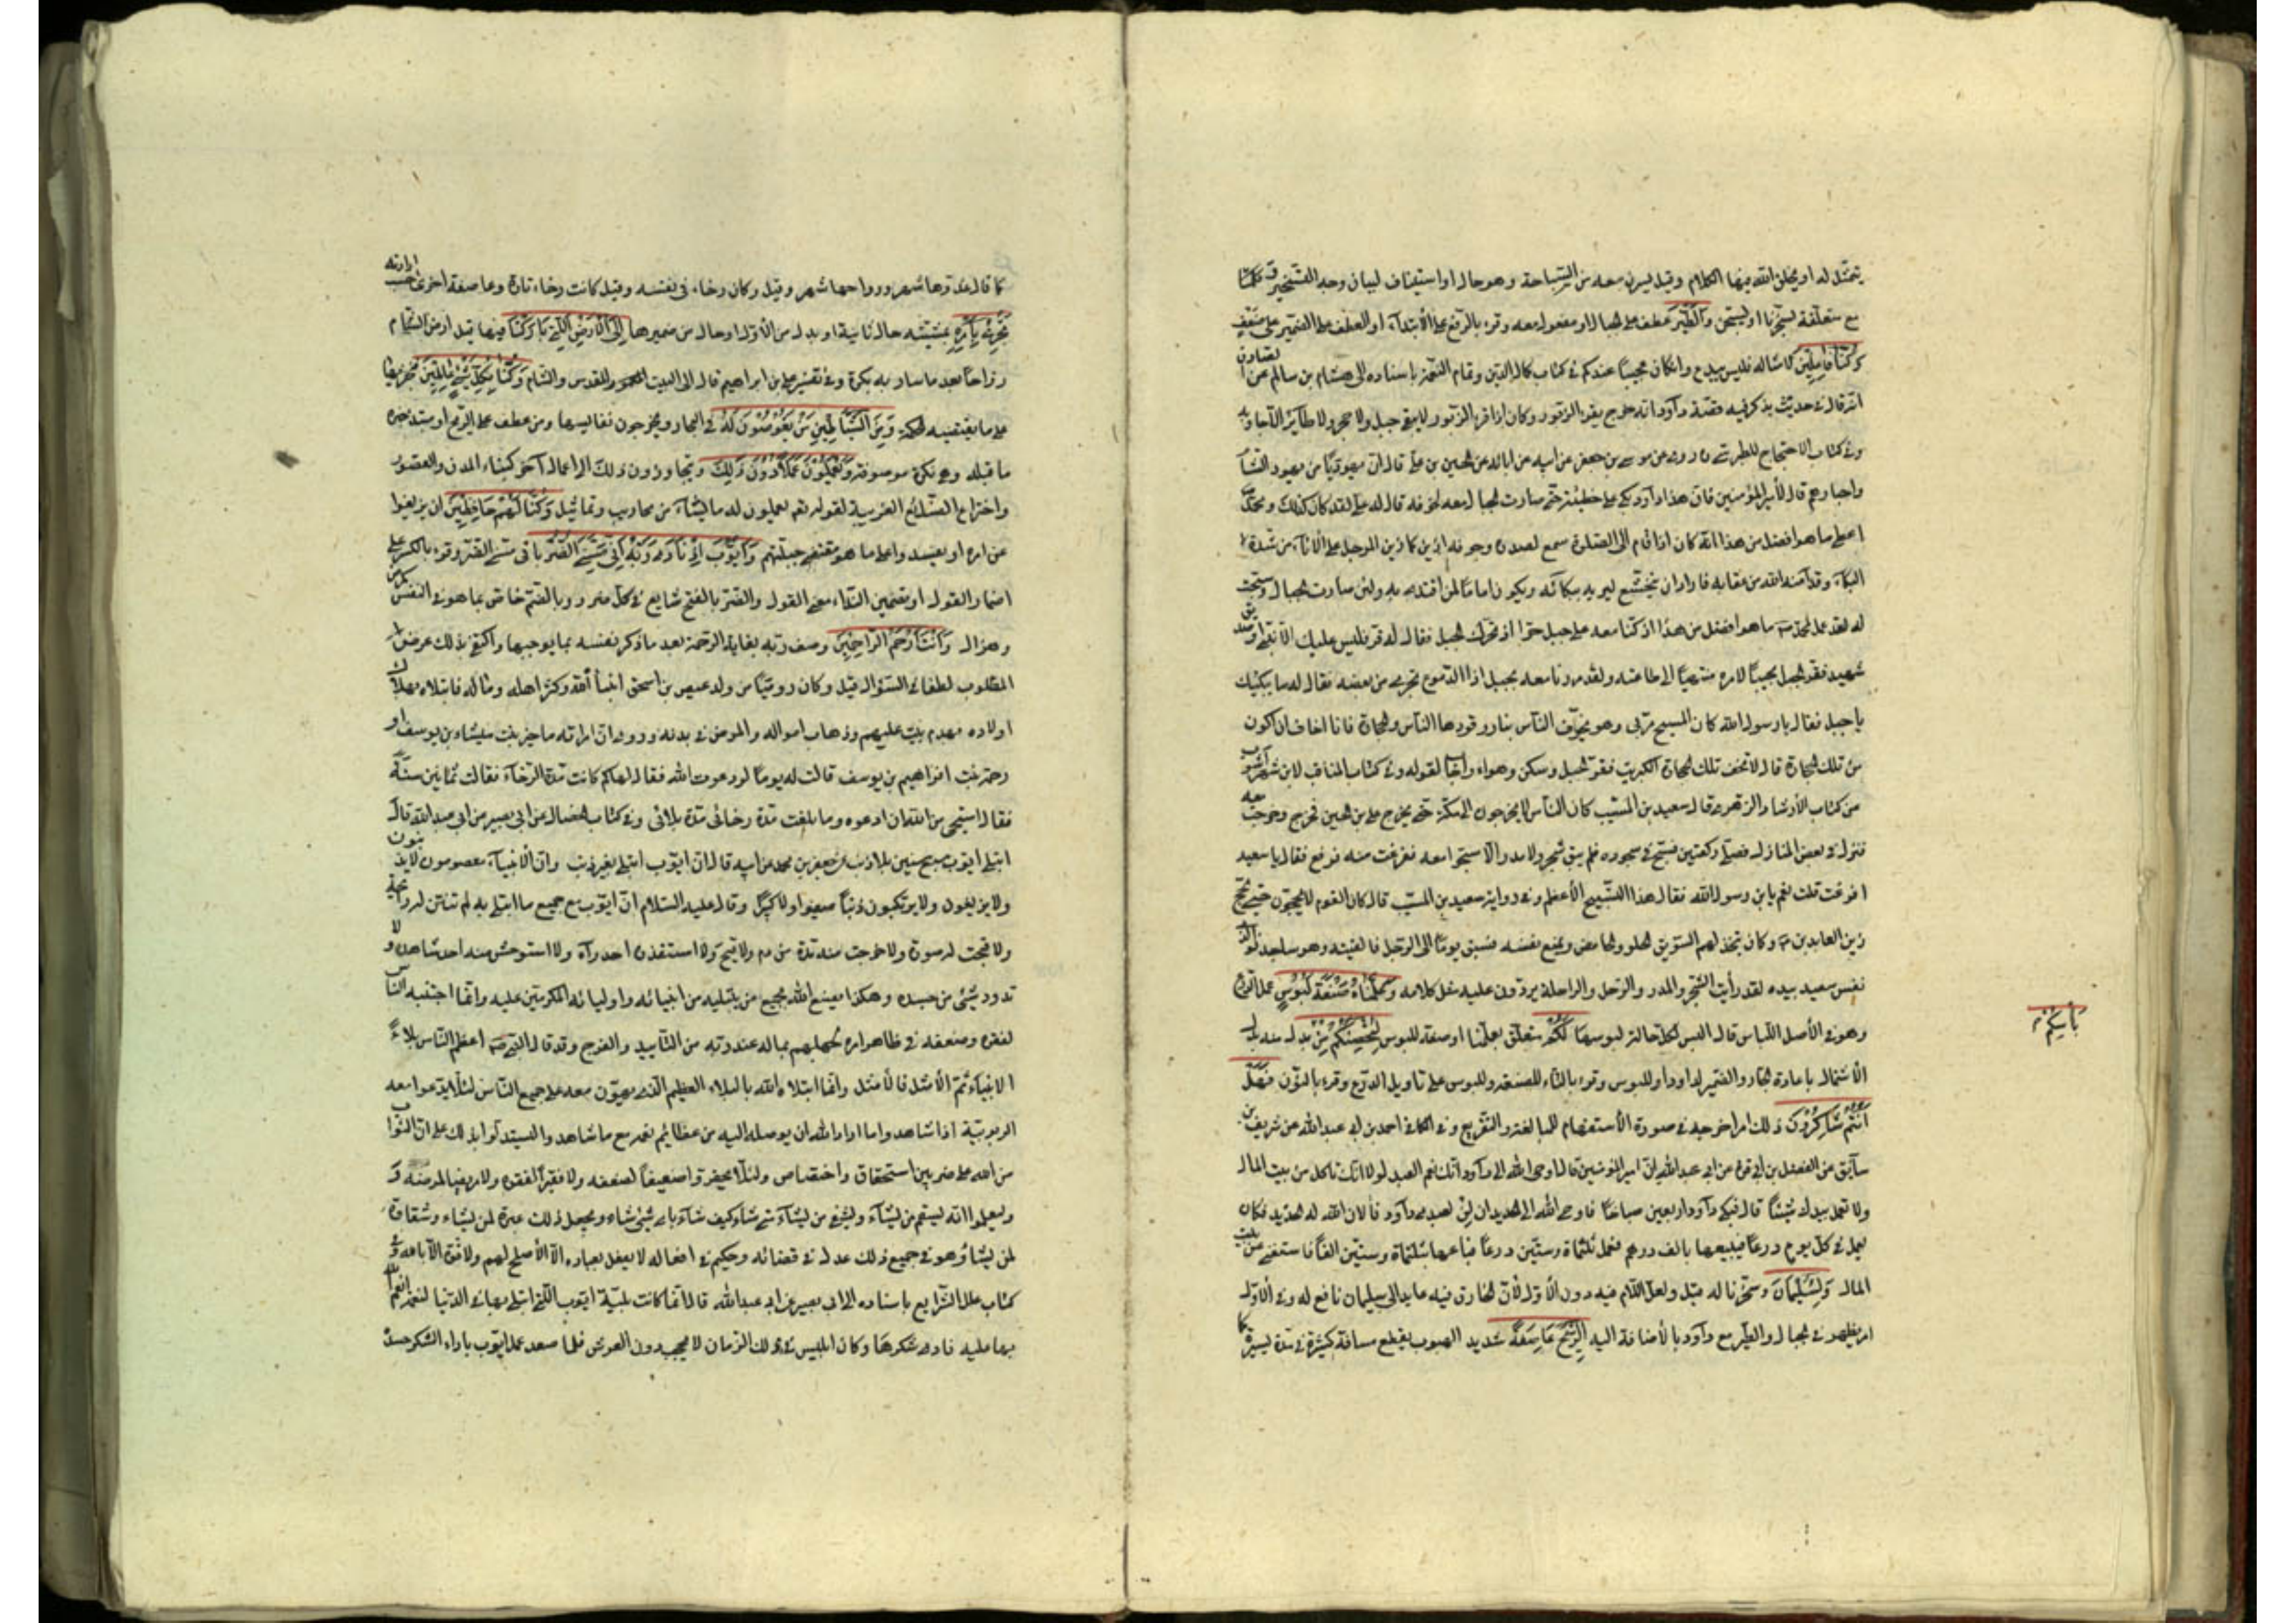 يتمثل له او يخلق الله فيها الكلام وقيل يسرن معه من السباحة وهو حال او استيناف لبيان وجه التسخير و
مع متعلقة بسخرنا او يسبحن وَالطَّيْرَ عطف على الجبال او مفعول معه وقرء بالرفع على الابتداء او العطف على الضمير على ضعف
وَكُنَّا فَاعِلِينَ لامثاله فليس ببدع وان كان عجيبا عندكم في كتاب كمال الدين وتمام النعمة باسناده الى هشام بن سالم عن الصادق
انه قال في حديث يذكر فيه قصة داود انه خرج يقرء الزبور وكان اذا قرء الزبور لا يبقى جبل ولا حجر ولا طاير الا جاوبه
وفي كتاب الاحتجاج للطبرسي ره روى عن موسى بن جعفر عن ابيه عن ابائه عن الحسين بن علي قال ان يهوديا من يهود الشام
واحبارهم قال لامير المؤمنين فان هذا داود بكى على خطيئته حتى سارت الجبال معه لخوفه قال له علي لقد كان كذلك ومحمد
اعطى ما هو افضل من هذا انه كان اذا قام الى الصلوة سمع لصدره وجوفه ازيز كازيز المرجل على الاثافي من شدة
البكاء وقد آمنه الله من عقابه فاراد ان يتخشع لربه ببكائه ويكون اماما لمن اقتدى به ولئن سارت الجبال وسبحت
له لقد عمل لمحمد ص ما هو افضل من هذا اذ كنا معه على جبل حرا اذ تحرك الجبل فقال له قر فليس عليك الا نبي او صديق
شهيد فقر الجبل مجيبا لامره منتهيا الى طاعته ولقد مررنا معه بجبل اذا الدموع تخرج من بعضه فقال له ما يبكيك
يا جبل فقال يا رسول الله كان المسيح مر بي وهو يخوف الناس بنار وقودها الناس والحجارة فانا اخاف ان اكون
من تلك الحجارة قال لا تخف تلك الحجارة الكبريت فقر الجبل وسكن وهدأ واجاب لقوله وفي كتاب المناقب لابن شهر آشوب
من كتاب الارشاد الزهري قال سعيد بن المسيب كان الناس لا يخرجون الى مكة حتى يخرج علي بن الحسين فخرج وخرجت معه
فنزل في بعض المنازل فصلى ركعتين فسبح في سجوده فلم يبق شجر ولا مدر الا سبحوا معه ففزعت منه فرفع فقال يا سعيد
افزعت قلت نعم يابن رسول الله فقال هذا التسبيح الاعظم وفي رواية سعيد بن المسيب قال كان القوم لا يخرجون حتى يخرج
زين العابدين ع وكان يتخذ لهم السويق الحلو والحامض ويمنع نفسه فسبق يوما الى الرحل فالفيته وهو ساجد فوالذي
نفس سعيد بيده لقد رأيت الشجر والمدر والرحل والراحلة يردون عليه مثل كلامه وَعَلَّمْنَاهُ صَنْعَةَ لَبُوسٍ عمل الدرع
وهو في الاصل اللباس قال البس لكل حالة لبوسها لَكُمْ متعلق بعلمنا او صفة للبوس لِتُحْصِنَكُمْ مِنْ بدل منه بدل
الاشتمال باعادة الجار والضمير لداود او للبوس وقرء بالتاء للصنعة وللبوس على تاويل الدرع وقرء بالنون فَهَلْ
أَنْتُمْ شَاكِرُونَ ذلك امر اخرجه في صورة الاستفهام للمبالغة والتقريع وفي الكافي احمد بن ابي عبد الله عن شريف بن
سابق عن الفضل بن ابي قرة عن ابي عبد الله ان امير المؤمنين قال اوحى الله الى داود انك نعم العبد لولا انك تاكل من بيت المال
ولا تعمل بيدك شيئا قال فبكى داود اربعين صباحا فاوحى الله الى الحديد ان لن لعبدي داود فالان الله له الحديد فكان
يعمل في كل يوم درعا فيبيعها بالف درهم فعمل ثلثماة وستين درعا فباعها بثلثماة وستين الفا فاستغنى عن بيت
المال وَلِسُلَيْمَانَ وسخرنا له قيل ولعل اللام فيه دون الاول لان الخارق فيه عايد الى سليمان نافع له وفي الاول
امر يظهر في الجبال والطير مع داود بالاضافة اليه الرِّيحَ عَاصِفَةً شديد الهبوب يقطع مسافة كثيرة في مدة يسيرة كما
بَأْسِكُمْ
كما قال غدوها شهر ورواحها شهر وقيل وكان رخاء في نفسه وقيل كانت رخاء تارة وعاصفة اخرى حسب ارادته
تَجْرِي بِأَمْرِهِ بمشيته حال ثانية او بدل من الاول او حال من ضميرها إِلَى الْأَرْضِ الَّتِي بَارَكْنَا فيها قيل ارض الشام
رواحا بعد ما سار به بكرة وفي تفسير علي بن ابراهيم قال الى البيت المقدس والشام وَكُنَّا بِكُلِّ شَيْءٍ عَالِمِينَ فنجريها
على ما يقتضيه الحكمة وَمِنَ الشَّيَاطِينِ مَنْ يَغُوصُونَ لَهُ في البحار ويخرجون نفايسها ومن عطف على الريح او مبتدا خبره
ما قبله وهي نكرة موصوفة وَيَعْمَلُونَ عَمَلًا دُونَ ذَلِكَ ويتجاوزون ذلك الى اعمال آخر كبناء المدن والقصور
واختراع الصنائع الغريبة لقوله تعم يعملون له ما يشاء من محاريب وتماثيل وَكُنَّا لَهُمْ حَافِظِينَ ان يزيغوا
عن امره او يفسدوا على ما هو مقتضى جبلتهم وَأَيُّوبَ إِذْ نَادَى رَبَّهُ أَنِّي مَسَّنِيَ الضُّرُّ باني مسني الضر وقرء بالكسر على
اضمار القول او تضمين النداء معنى القول والضر بالفتح شايع في كل ضرر وبالضم خاص بما هو في النفس كمرض
وهزال وَأَنْتَ أَرْحَمُ الرَّاحِمِينَ وصف ربه بغاية الرحمة بعد ما ذكر نفسه بما يوجبها واكتفى بذلك عن عرض
المطلوب لطفا في السؤال قيل وكان روميا من ولد عيص بن اسحق استنبأه الله وكثر اهله وماله فابتلاه بهلاك
اولاده بهدم بيت عليهم وذهاب امواله والمرض في بدنه وروى ان امراته ماخير بنت ميشا بن يوسف او
رحمة بنت افراهيم بن يوسف قالت له يوما لو دعوت الله فقال لها كم كانت مدة الرخاء فقالت ثمانين سنة
فقال استحي من الله ان ادعوه وما بلغت مدة رخائي مدة بلائي وفي كتاب الخصال عن ابي بصير عن ابي عبد الله قال
ابتلى ايوب سبع سنين بلا ذنب عن جعفر بن محمد عن ابيه قال ان ايوب ابتلى بغير ذنب وان الانبياء معصومون لا يذنبون
ولا يزيغون ولا يرتكبون ذنبا صغيرا ولا كبيرا وقال عليه السلام ان ايوب مع جميع ما ابتلى به لم تنتن له رايحة
ولا قبحت له صورة ولا خرجت منه مدة من دم ولا قيح ولا استقذره احد رآه ولا استوحش منه احد شاهده ولا
تدود شيء من جسده وهكذا يصنع الله بجميع من يبتليه من انبيائه واوليائه المكرمين عليه وانما اجتنبه الناس
لفقره وضعفه في ظاهر امره لجهلهم بما له عند ربه من التأييد والفرج وقد قال النبي ص اعظم الناس بلاء
الانبياء ثم الامثل فالامثل وانما ابتلاه الله بالبلاء العظيم الذي يهون معه على جميع الناس لئلا يدعوا معه
الربوبية اذا شاهدوا ما اراد الله ان يوصله اليه من عظائم نعمه مع ما شاهدوا ليستدلوا بذلك على ان الثواب
من الله على ضربين استحقاق واختصاص ولئلا يحقروا ضعيفا لضعفه ولا فقيرا لفقره ولا مريضا لمرضه و
ليعلموا انه يسقم من يشاء ويشفي من يشاء متى شاء كيف شاء باي شيء شاء ويجعل ذلك عبرة لمن يشاء وشقاوة
لمن يشاء وهو في جميع ذلك عدل في قضائه وحكيم في افعاله لا يفعل بعباده الا الاصلح لهم ولا قوة الا بالله وفي
كتاب علل الشرايع باسناده الى ابي بصير عن ابي عبد الله قال انما كانت بلية ايوب التي ابتلى بها في الدنيا لنعمة انعم الله
بها عليه فادى شكرها وكان ابليس في ذلك الزمان لا يحجب دون العرش فلما صعد عمل ايوب باداء الشكر حسده